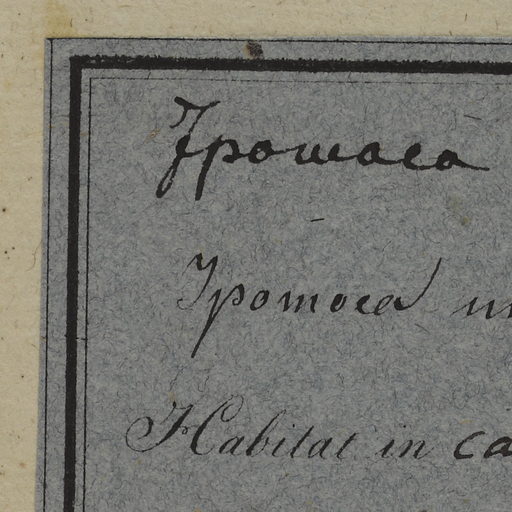 Ipomoea
Ipomoea
Habitat in